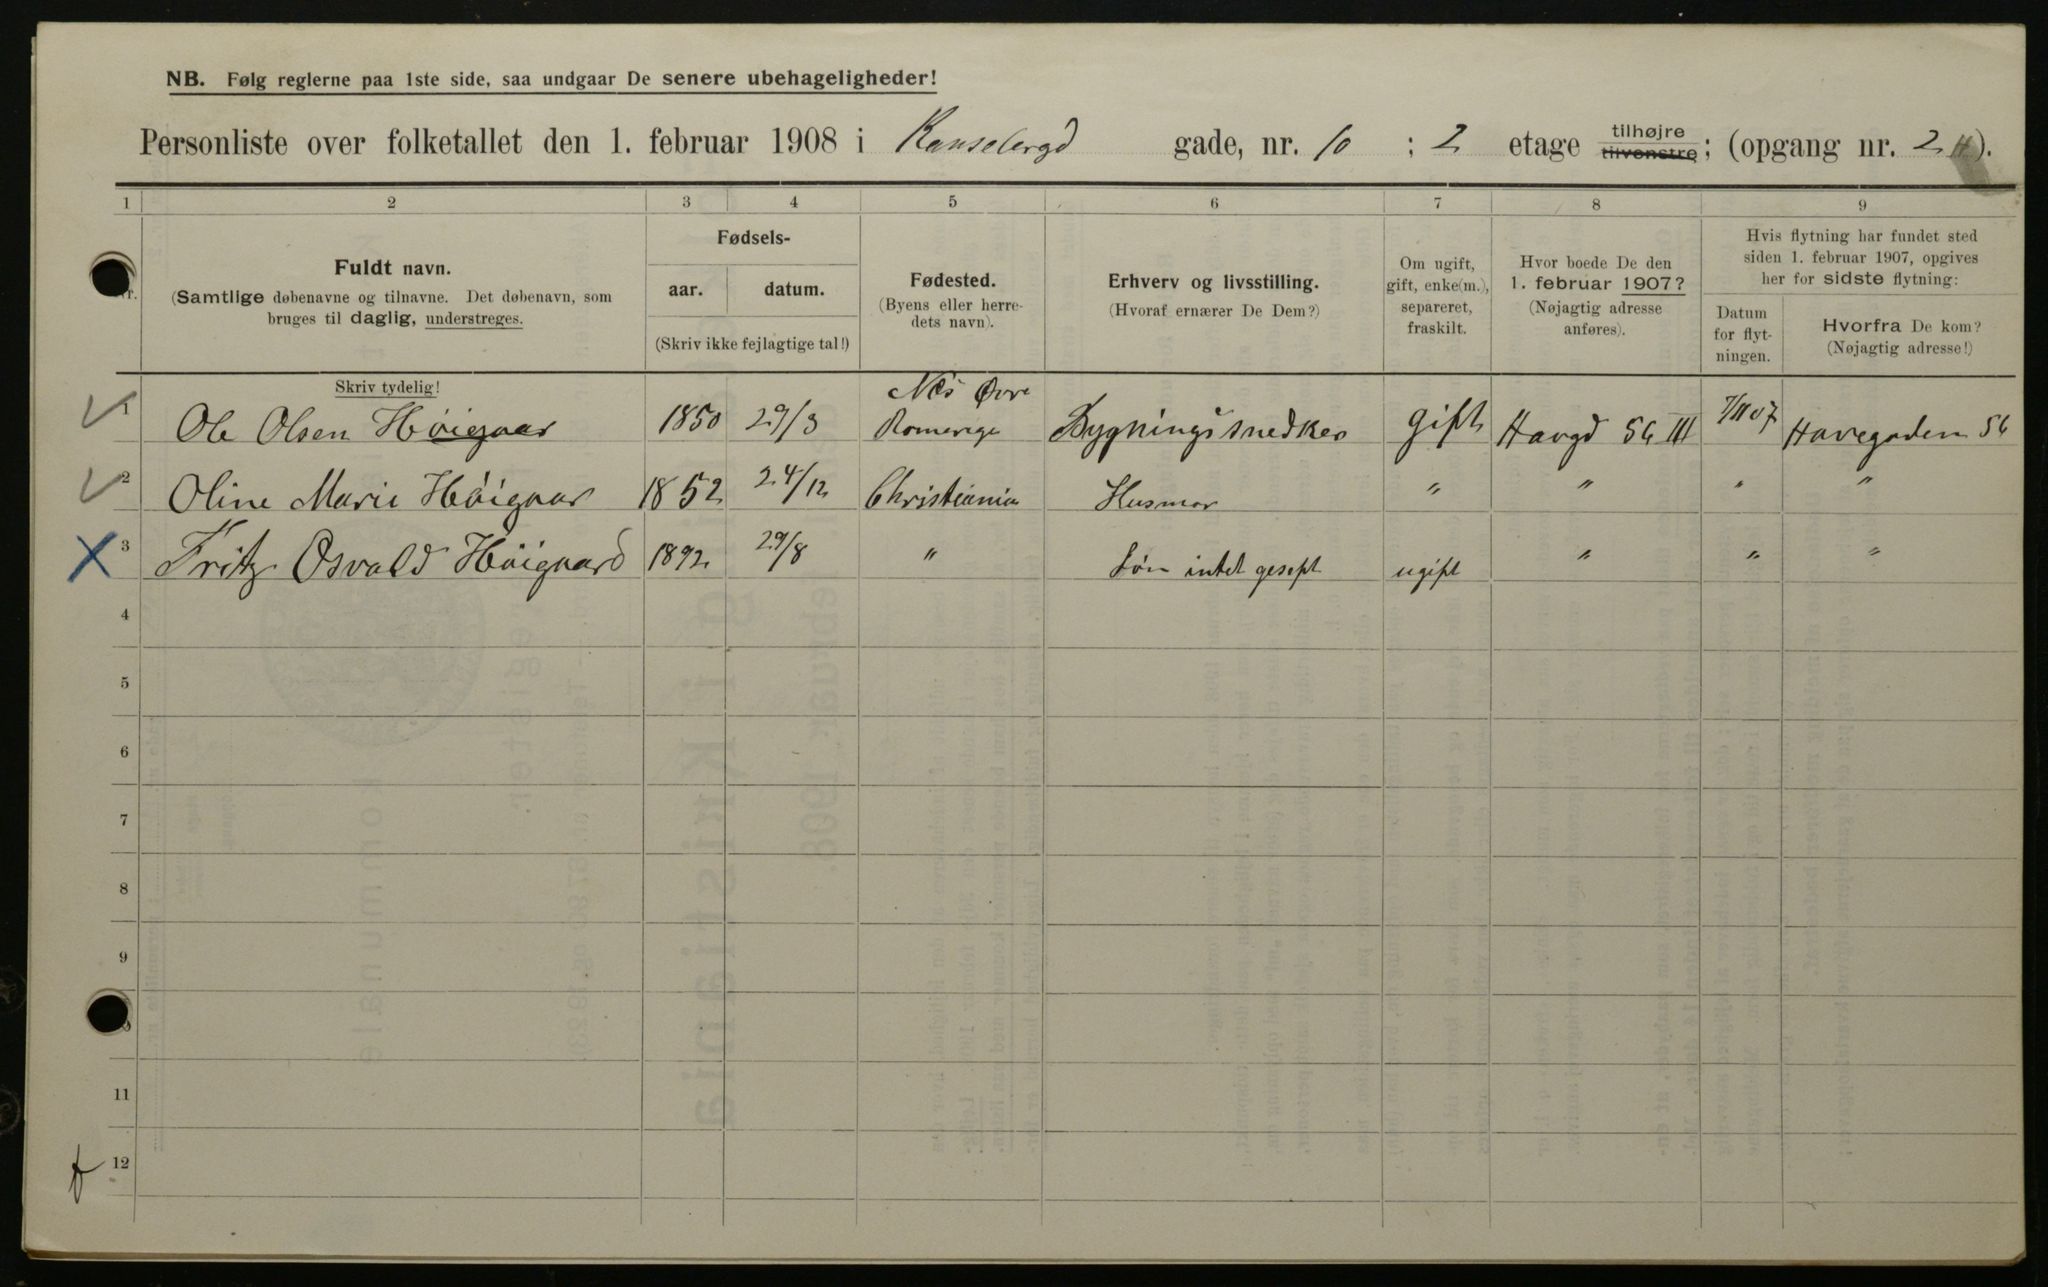 NB. Følg reglerne paa 1ste side, saa undgaar De senere ubehageligheder!
Personliste over folketallet den 1. februar 1908 i gade, nr. 10 ; 2 etage tilhøjre tilvenstre; (opgang nr. 2 H).
1 2 3 4 5 6 7 8 9
Fuldt navn.
(Samtlige døbenavne og tilnavne. Det døbenavn, som
bruges til daglig, understreges.
Skriv tydelig!
Fødsels-
aar. datum.
(Skriv ikke fejlagtige tal!)
Fødested.
(Byens eller herre-
dets navn).
Erhverv og livsstilling.
(Hvoraf ernærer De Dem?)
Om ugift,
gift, enke(m.),
separeret,
fraskilt.
Hvor boede De den
1. februar 1907?
(Nøjagtig adresse
anføres).
Hvis flytning har fundet sted
siden 1. februar 1907, opgives
her for sidste flytning:
Datum
for flyt-
ningen.
Hvorfra De kom?
(Nøjagtig adresse!)
1 Ole Olsen Höigaar 1850 29/3 Næs Øvre Romerige Bygningssnedker gift Havgd 56 III Havegaden 56
2 Oline Marie Höigaar 1852 24/12 Christiania Husmor " " " "
3 Fritz Osvald Höigaard 1892 29/8 " Søn intet gesept ugift " " "
4
5
6
7
8
9
11
12